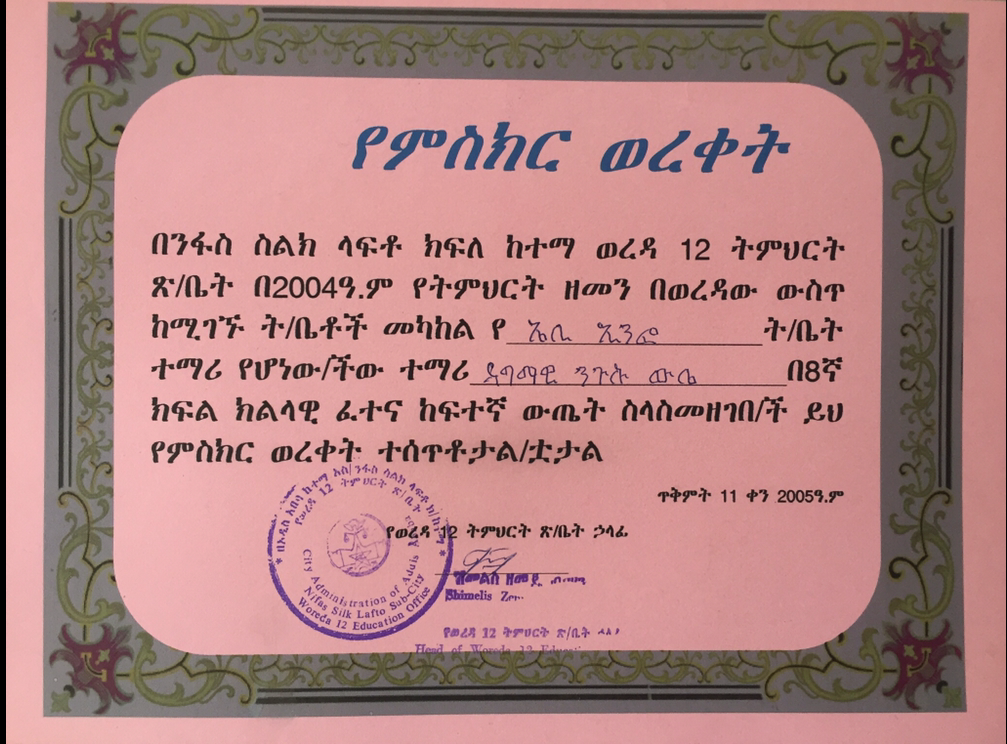 የምስክር ወረቀት
በንፋስ ስልክ ላፍቶ ክፍለ ከተማ ወረዳ 12 ትምህርት
ጽ/ቤት በ2004ዓ.ም የትምህርት ዘመን በወረዳው ውስጥ
ከሚገኙ ት/ቤቶች መካከል የ ት/ቤት
ተማሪ የሆነው/ችው ተማሪ ዳግማዊ ንጉሴ በ8ኛ
ክፍል ክልላዊ ፈተና ከፍተኛ ውጤት ስላስመዘገበ/ች ይህ
የምስክር ወረቀት ተሰጥቶታል/ቷታል
ጥቅምት 11 ቀን 2005ዓ.ም
የወረዳ 12 ትምህርት ጽ/ቤት ኃላፊ
ሽመልስ ዘመዴ
Shimelis
የወረዳ 12 ትምህርት ጽ/ቤት
Head of Woreda 12
በአዲስ አበባ ከተማ አስ/ንፋስ ስልክ ላፍቶ ክ/ከተማ
የወረዳ 12 ትምህርት ጽ/ቤት
City Administration of Addis Ababa
Nifas Silk Lafto Sub-City
Woreda 12 Education Office